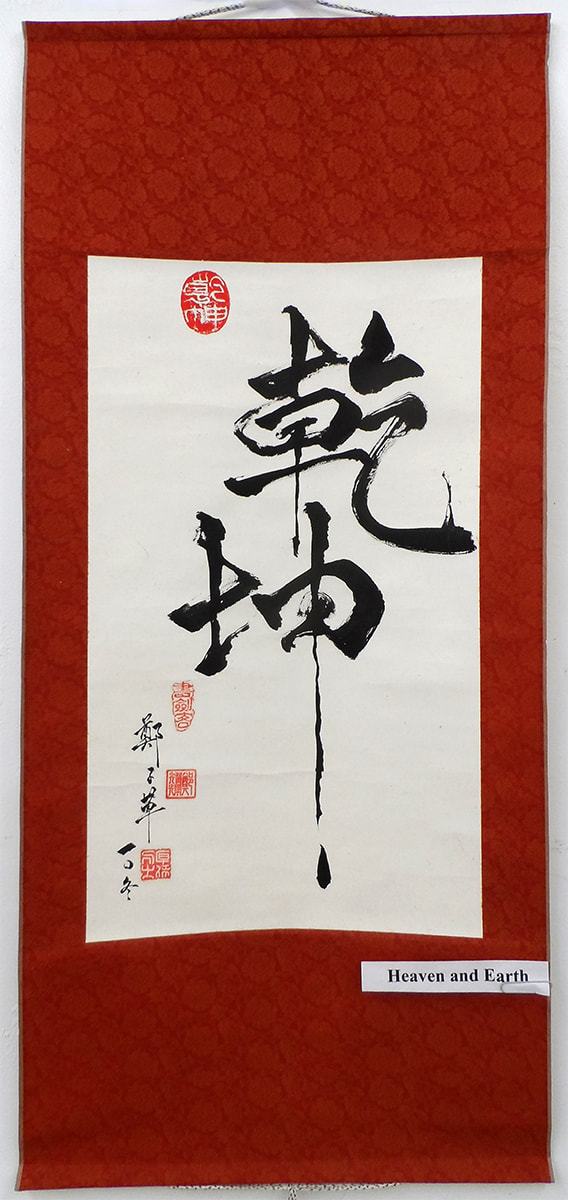 乾
坤
鄭
百冬
Heaven and Earth